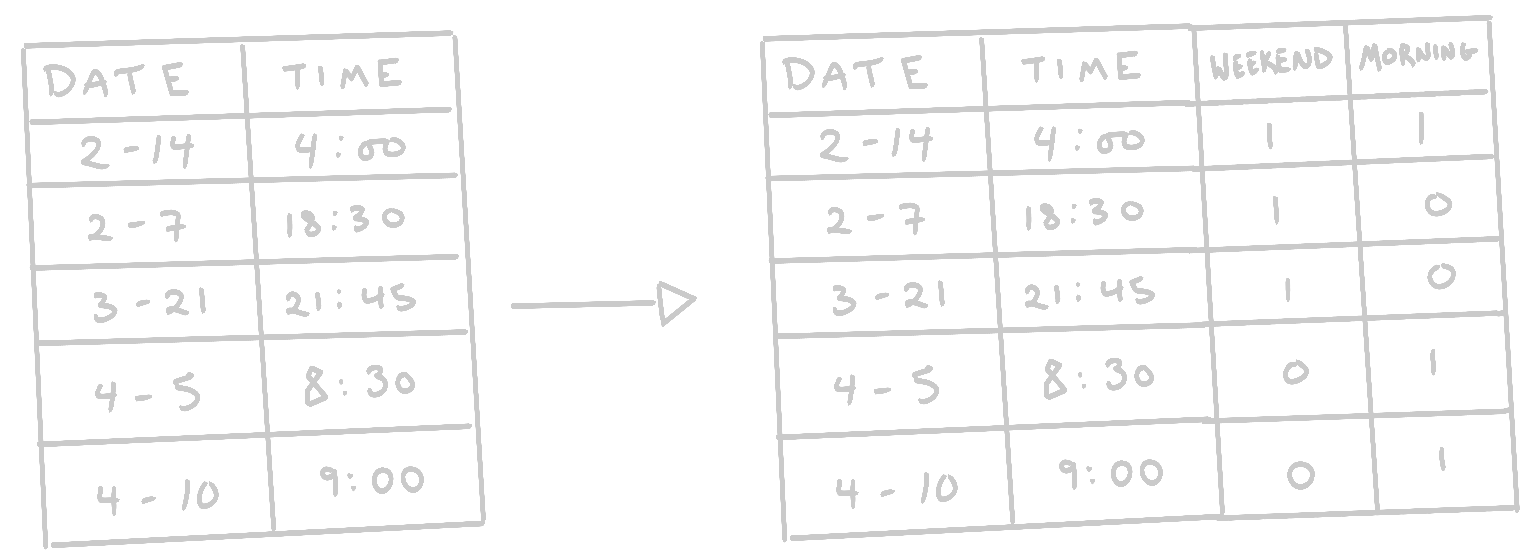 DATE TIME
2-14 4:00
2-7 18:30
3-21 21:45
4-5 8:30
4-10 9:00
DATE TIME WEEKEND MORNING
2-14 4:00 1 1
2-7 18:30 1 0
3-21 21:45 1 0
4-5 8:30 0 1
4-10 9:00 0 1